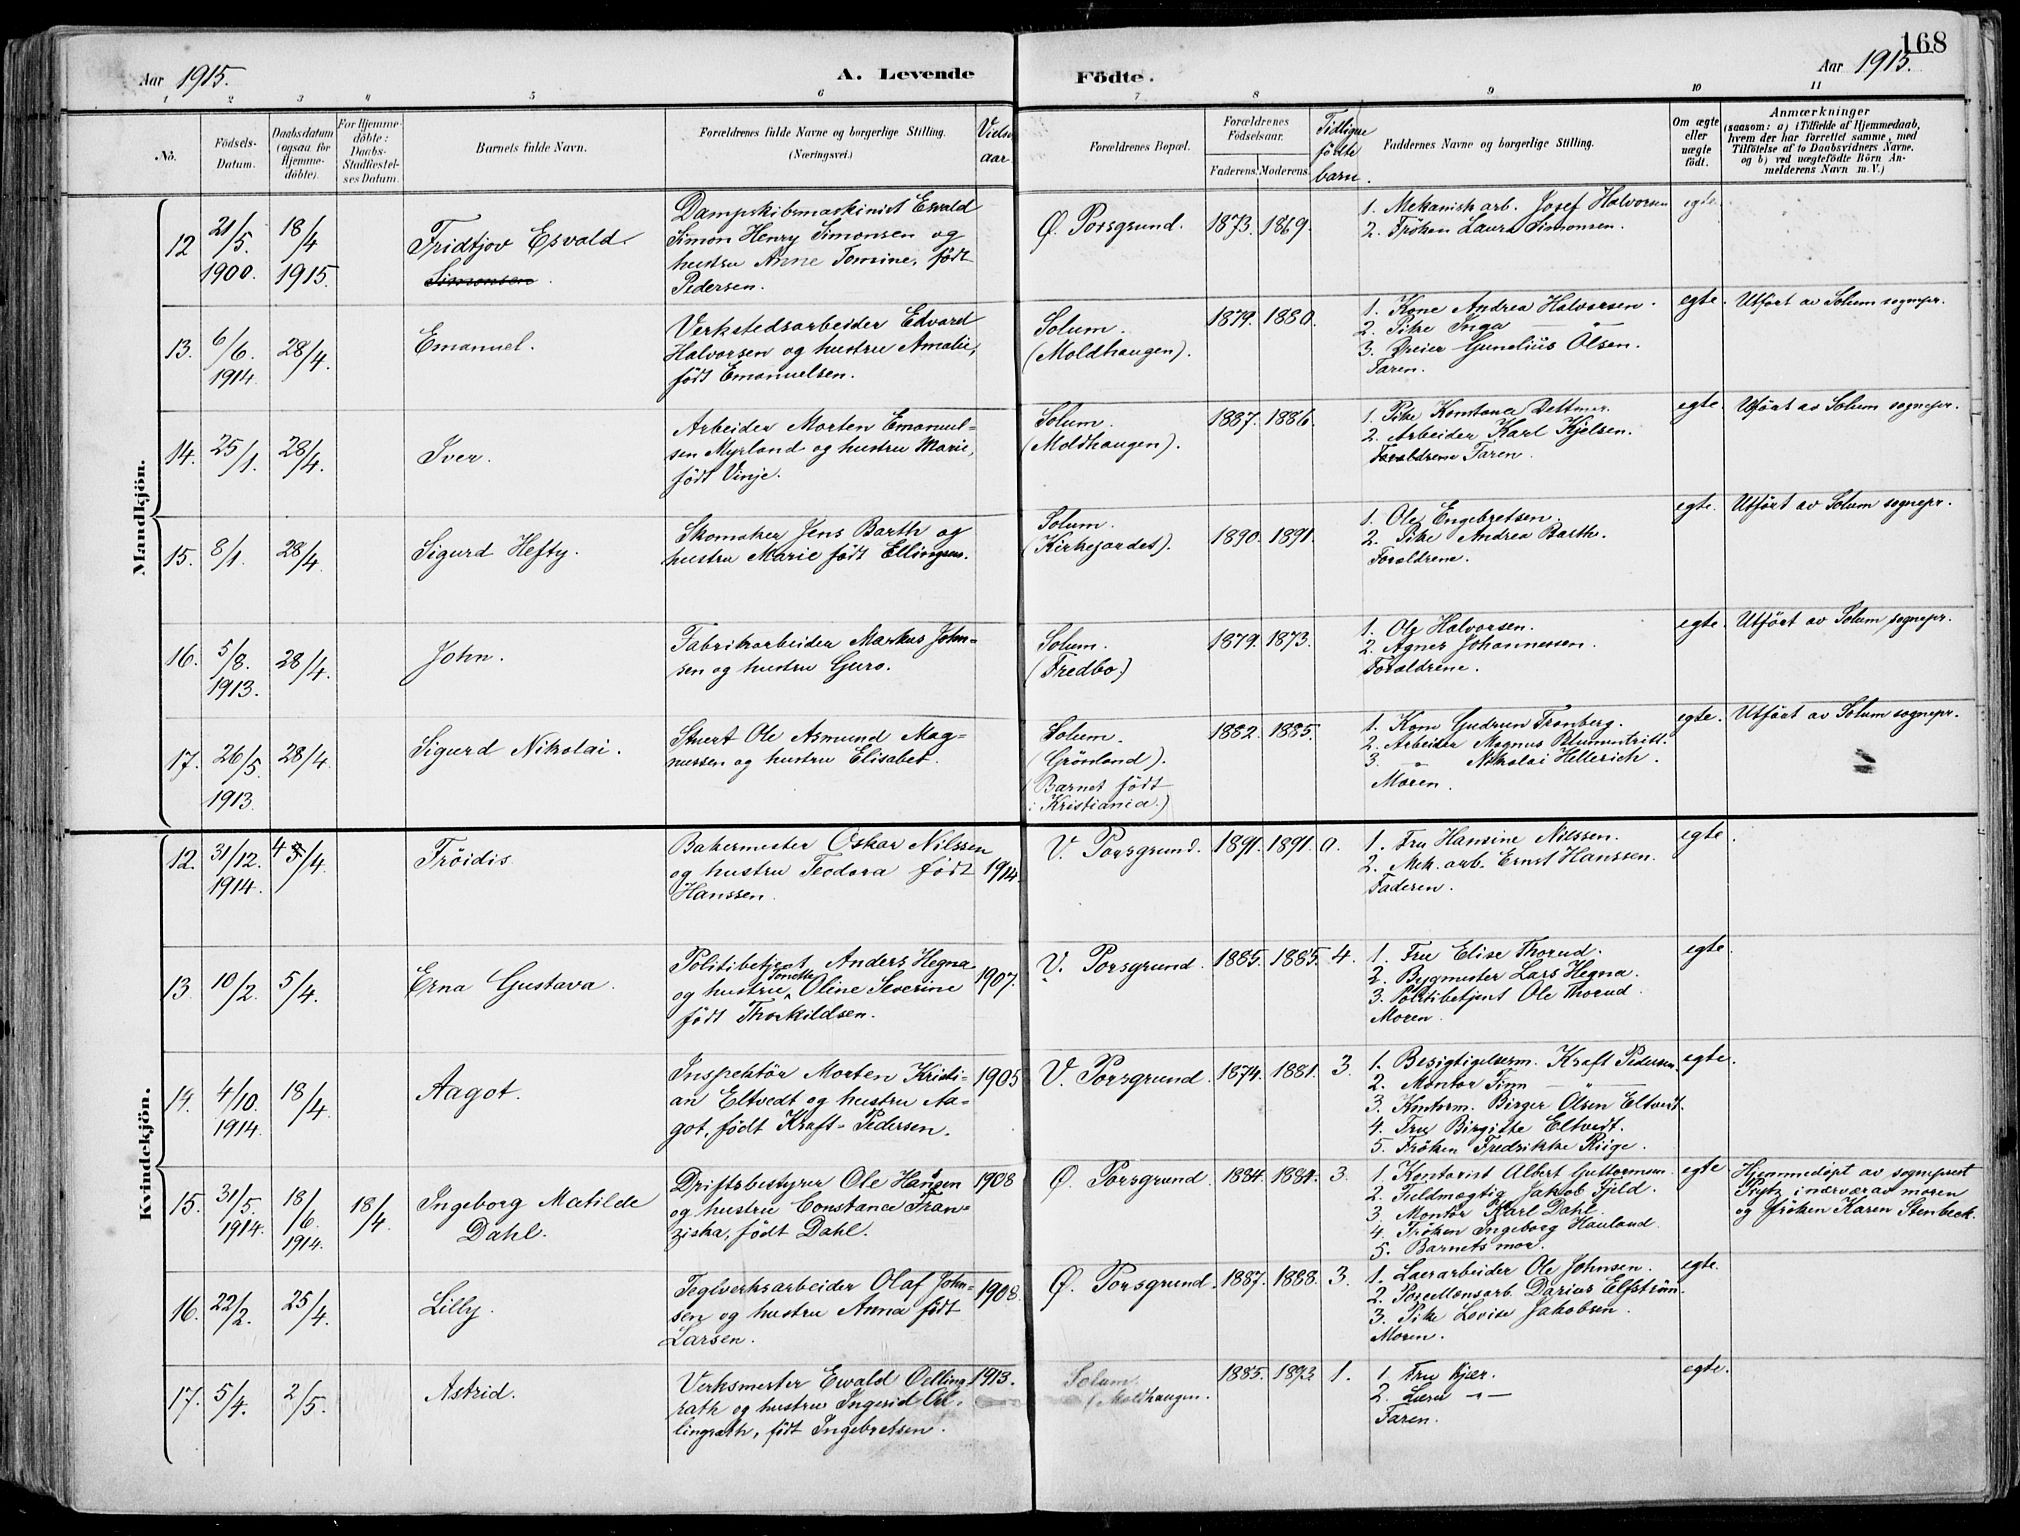 168
Aar 1915.
A. Levende
Födte.
Aar 1915.
1 2 3 4 5 6 7 8 9 10 11
No.
Födsels-
Datum.
Daabsdatum
(ogsaa for
Hjemme-
döbte).
For Hjemme-
döbte:
Daabs-
Stadfæstel-
ses Datum.
Barnets fulde Navn.
Forældrenes fulde Navne og borgerlige Stilling.
(Næringsvei.)
Vielses
aar
Forældrenes Bopæl.
Forældrenes
Födselsaar.
Faderens. Moderens.
Tidligere
födte
barn.
Faddernes Navne og borgerlige Stilling.
Om ægte
eller
uægte
födt.
Anmærkninger
(saasom: a) i Tilfælde af Hjemmedaab,
hvem der har forrettet samme, med
Tilföielse af to Daabsvidners Navne.
og b) ved uægtefödte Börn An-
melderens Navn m. V.)
Mandkjön.
12
21/5.
1900.
18/4
1915.
Fridtjov Esvald
Simonsen.
Dampskibsmaskinist Esvald
Simon Henry Simonsen og
hustru Anne Tomine, født
Pedersen.
Ø. Porsgrund.
1873. 1869.
1. Mekanisk arb. Josef Halvorsen
2. Frøken Laura Simonsen.
egte
13.
6/6.
1914.
28/4.
Emanuel.
Verkstedsarbeider Edvard
Halvorsen og hustru Amalie,
født Emanuelsen.
Solum.
(Moldhaugen).
1879. 1880.
1. Kone Andrea Halvorsen.
2. Pike Inga — " —
3. Dreier Gunelius Olsen.
Faren.
egte.
Utført av Solum sognepr.
14.
25/1.
28/4.
Iver.
Arbeider Morten Emanuel-
sen Myrland og hustru Marie,
født Vinje.
Solum.
(Moldhaugen).
1887. 1886.
1. Pike Konstance Dettmer.
2. Arbeider Karl Kjelsen.
Forældrene Faren.
egte.
Utført av Solum sognepr.
15.
8/1.
28/4.
Sigurd Hefty.
Skomaker Jens Barth og
hustru Marie født Ellingsen.
Solum.
(Kirkejordet).
1890. 1891.
1. Ole Engebretsen.
2. Pike Andrea Barth.
Forældrene.
egte.
Utført av Solum sognepr.
16.
5/8.
1913.
28/4.
John.
Fabrikarbeider Markus John-
sen og hustru Guro.
Solum.
(Fredbo.)
1879. 1873.
1. Ole Halvorsen.
2. Agnes Johannessen.
Forældrene.
egte.
Utført av Solum sognepr.
17.
26/5.
1913.
28/4.
Sigurd Nikolai.
Stuert Ole Asmund Mag-
nussen og hustru Elisabet.
Solum.
(Grönland).
(Barnet født
i Kristiania.)
1882. 1885.
1. Kone Gudrun Tronberg.
2. Arbeider Magnus Blumentritt.
3. — " — Nikolai Hellerich.
Moren.
egte.
Utført av Solum sognepr.
Kvindekjön.
12.
31/12.
1914.
4/4.
Fröidis
Bakermester Oskar Nilssen
og hustru Teodora født
Hanssen.
1914.
V. Porsgrund.
1891. 1891. 0.
1. Fru Hansine Nilssen.
2. Mek. arb. Ernst Hanssen.
Faderen.
egte.
13.
10/2.
5/4.
Erna Gustava.
Politibetjent Anders Hegna
og hustru Tonette Oline Severine
født Thorkildsen.
1907.
V. Porsgrund.
1885. 1885. 4.
1. Fru Elise Thorud.
2. Bygmester Lars Hegna.
3. Politibetjent Ole Thorud.
Moren.
egte.
14.
4/10.
1914.
18/4.
Aagot.
Inspektör Morten Kristi-
an Eltvedt og hustru Aa-
got, født Kraft-Pedersen.
1905
V. Porsgrund.
1874. 1881. 3.
1. Besigtigelsesm. Kraft Pedersen
2. Montør Finn — " —
3. Kontorm. Birger Olsen Eltvedt.
4. Fru Birgitte Eltvedt.
5. Frøken Fredrikke Riige.
egte.
15.
31/5.
1914.
18/6.
1914.
18/4.
Ingeborg Matilde
Dahl.
Driftsbestyrer Ole Hansen
og hustru Constance Fran-
ziska, født Dahl.
1908
Ø. Porsgrund.
1884. 1884. 3.
1. Kontorist Albert Guttormsen
2. Fuldmægtig Jakob Fjeld.
3. Montør Karl Dahl.
4. Frøken Ingeborg Hauland.
5. Barnets mor.
egte
Hjemmedøpt av sogneprest
Prytz i nærvær av moren
og frøken Karen Stenbeck.
16.
22/2.
25/4.
Lilly.
Teglverksarbeider Olaf John-
sen og hustru Anna født
Larsen.
1908.
Ø. Porsgrund.
1887. 1888. 3.
1. Laerarbeider Ole Johnsen.
2. Porcellensarb. Darius Elfström.
3. Pike Lovise Jakobsen.
Moren.
egte.
17.
5/4.
2/5.
Astrid.
Verksmester Ewald Oelling-
rath og hustru Ingerid Oel-
lingrath, født Ingebretsen.
1913.
Solum.
(Moldhaugen.
1885. 1893. 1.
1. Fru Kjær.
2. Lærer — " —
Faren.
egte.